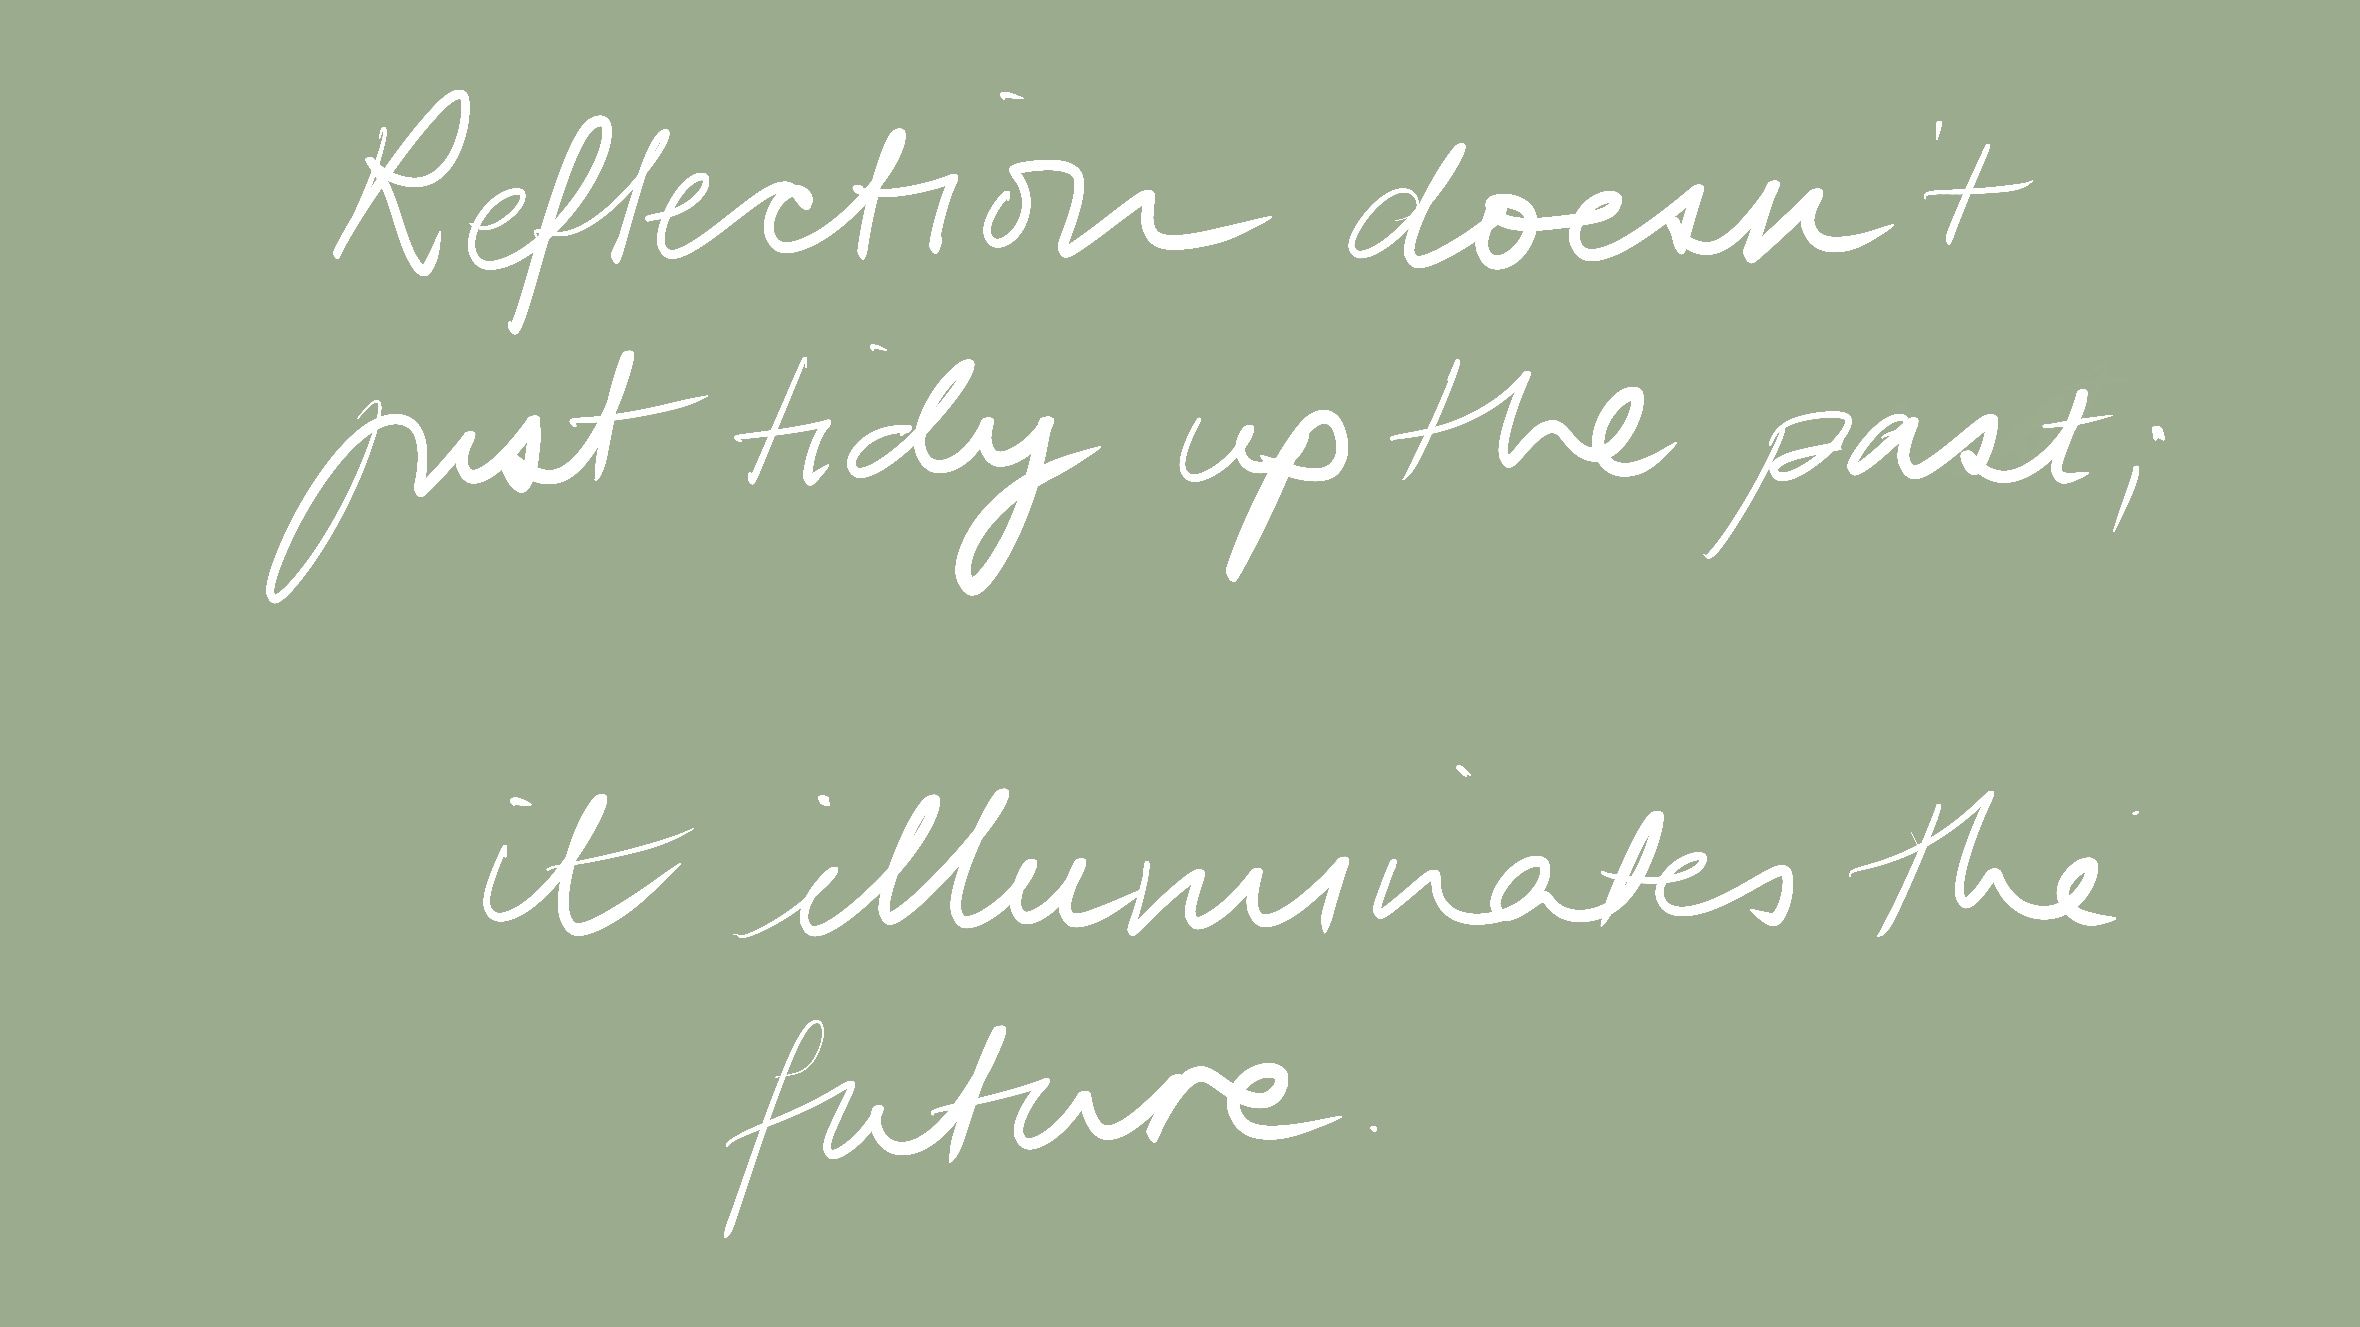 Reflection doesn't
just tidy up the past;
it illuminates the
future.